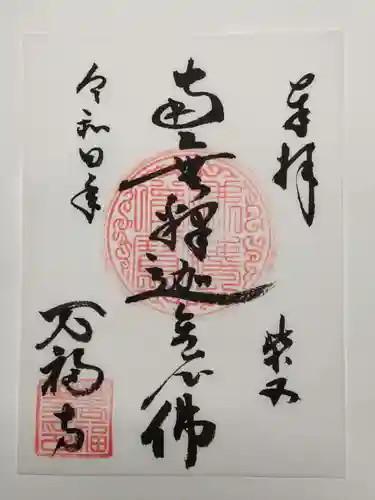 奉拝
柴又
南無釋迦牟尼佛
令和四年
万福寺